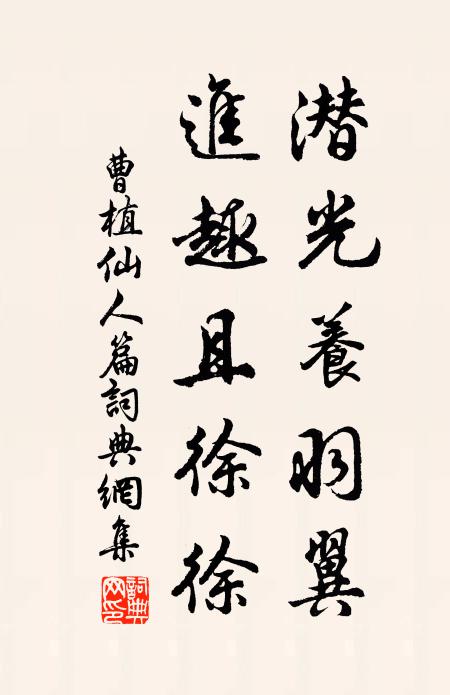 潜光養羽翼
進趣且徐徐
曹植仙人篇詞典網集
詞典網印